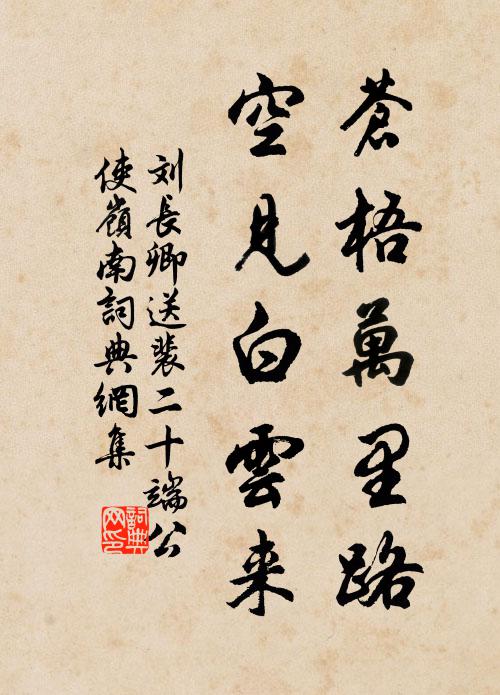 蒼梧萬里路
空見白雲来
刘長卿送裴二十端公
使嶺南詞典網集
詞典
网印